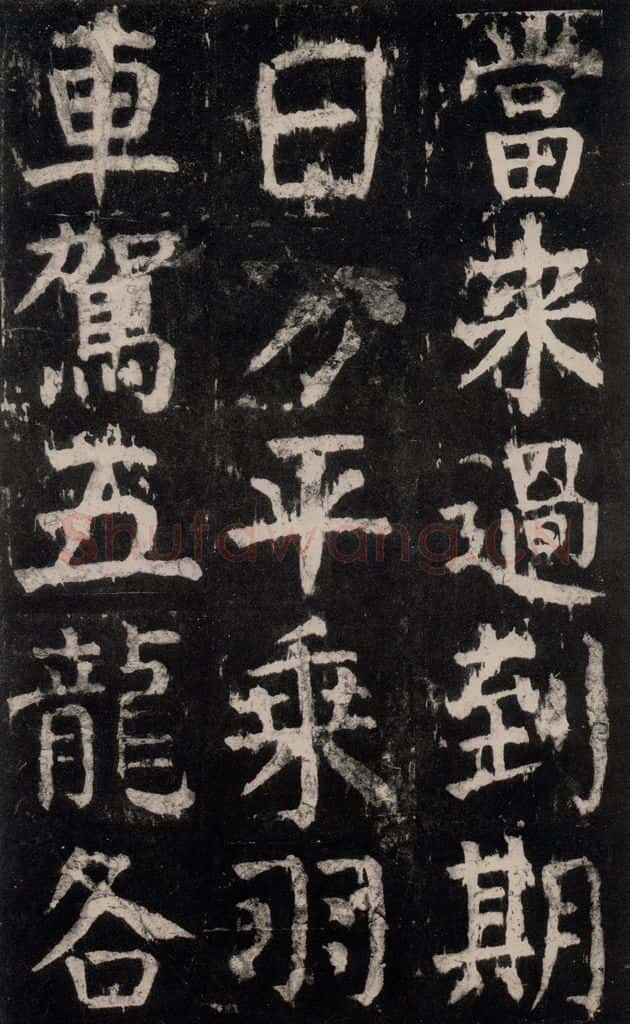 當来過到期
日方平乘羽
車駕五龍各
Shufawang.CN